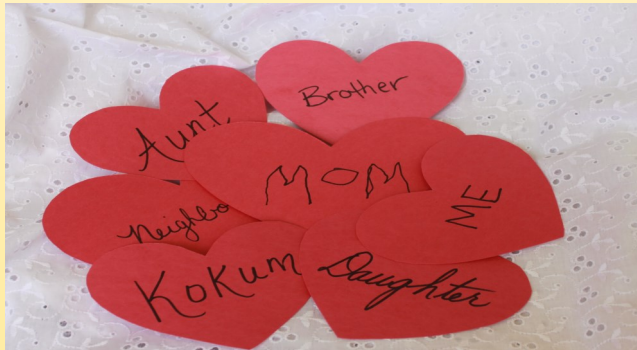 Brother
Aunt
MOM
ME
Neighbo
KoKum
Daughter